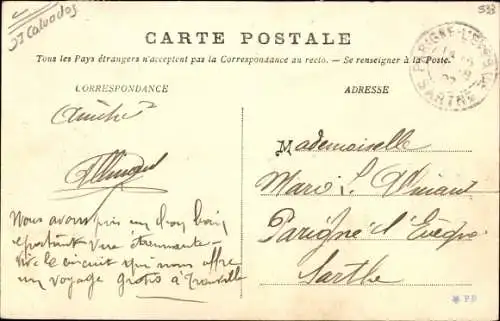 Calvados
533
CARTE POSTALE
Tous les Pays étrangers n'acceptent pas la Correspondance au recto. — Se renseigner à la Poste.
CORRESPONDANCE
ADRESSE
PARIGNÉ-L'
SARTHE
Amitiés
Mademoiselle
Marie L.
Parigné l'Evêque
Sarthe
Nous avons pris un bain
épatant
Vive le circuit qui nous offre
un voyage gratis à Trouville